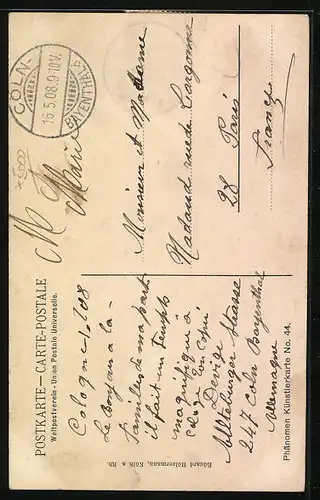 POSTKARTE — CARTE-POSTALE
Weltpostverein - Union Postale Universelle.
CÖLN-
BAYENTHAL b
15.5.08.9-10V.
Cologne 1908
Le bonjour a la
famille de ma part
il fait un temps
magnifique à
Devige
Alteburger Strasse
247 Cöln Bayenthal
Allemagne
M
Monsieur et Madame
Nadaud rue de
28 Paris
France
Phänomen Künstlerkarte No. 44.
Eduard Holtermann, Köln a. Rh.